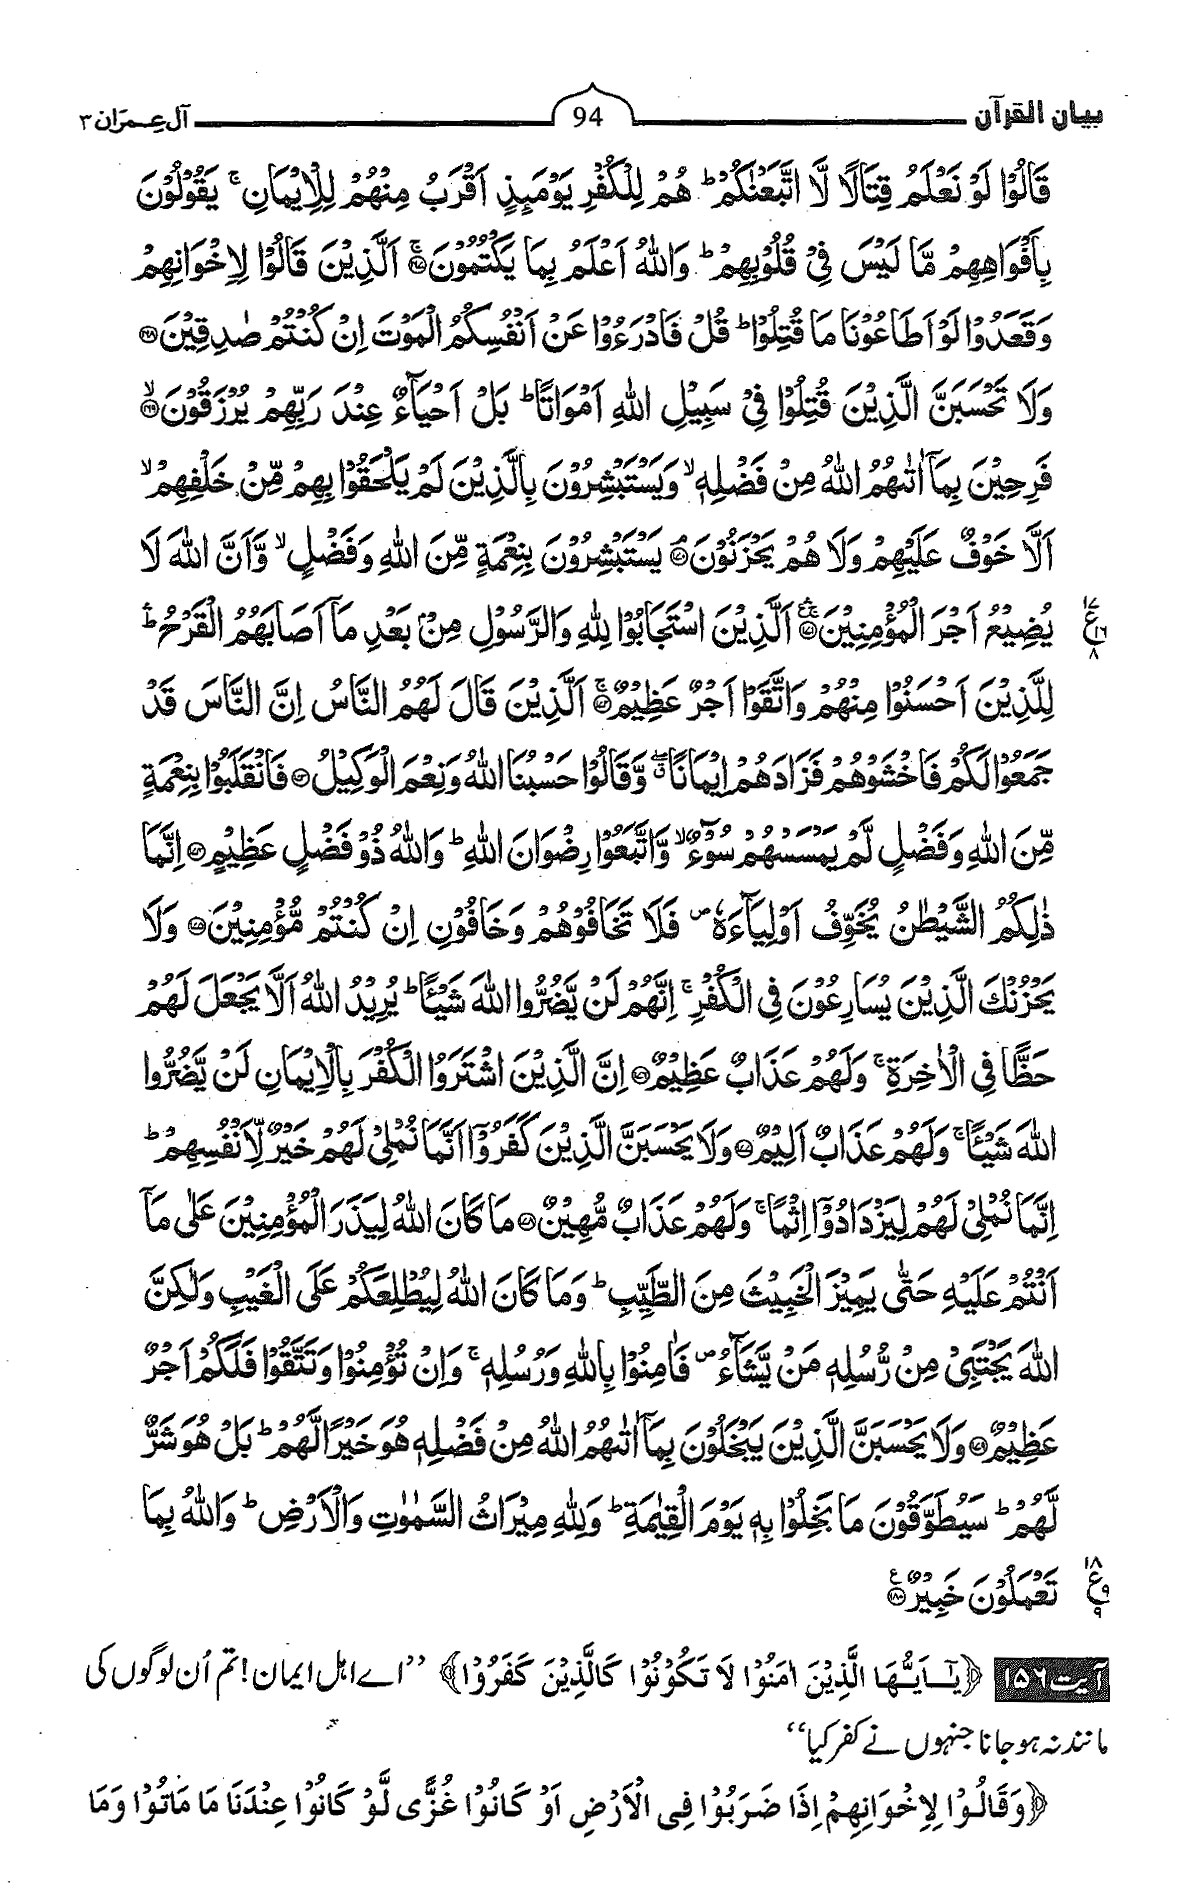 بیان القرآن 94 آل عمران ۳
قَالُوْا لَوْ نَعْلَمُ قِتَالًا لَّا اتَّبَعْنٰكُمْ ؕ هُمْ لِلْكُفْرِ يَوْمَىِٕذٍ اَقْرَبُ مِنْهُمْ لِلْاِيْمَانِ ۚ يَقُوْلُوْنَ
بِاَفْوَاهِهِمْ مَّا لَيْسَ فِيْ قُلُوْبِهِمْ ؕ وَاللّٰهُ اَعْلَمُ بِمَا يَكْتُمُوْنَ ﴿۱۶۷﴾ۚ اَلَّذِيْنَ قَالُوْا لِاِخْوَانِهِمْ
وَقَعَدُوْا لَوْ اَطَاعُوْنَا مَا قُتِلُوْا ؕ قُلْ فَادْرَءُوْا عَنْ اَنْفُسِكُمُ الْمَوْتَ اِنْ كُنْتُمْ صٰدِقِيْنَ ﴿۱۶۸﴾
وَلَا تَحْسَبَنَّ الَّذِيْنَ قُتِلُوْا فِيْ سَبِيْلِ اللّٰهِ اَمْوَاتًا ؕ بَلْ اَحْيَآءٌ عِنْدَ رَبِّهِمْ يُرْزَقُوْنَ ﴿۱۶۹﴾ۙ
فَرِحِيْنَ بِمَاۤ اٰتٰىهُمُ اللّٰهُ مِنْ فَضْلِهٖ ۙ وَيَسْتَبْشِرُوْنَ بِالَّذِيْنَ لَمْ يَلْحَقُوْا بِهِمْ مِّنْ خَلْفِهِمْ ۙ
اَلَّا خَوْفٌ عَلَيْهِمْ وَلَا هُمْ يَحْزَنُوْنَ ﴿۱۷۰﴾ يَسْتَبْشِرُوْنَ بِنِعْمَةٍ مِّنَ اللّٰهِ وَفَضْلٍ ۙ وَّاَنَّ اللّٰهَ لَا
يُضِيْعُ اَجْرَ الْمُؤْمِنِيْنَ ﴿۱۷۱﴾ اَلَّذِيْنَ اسْتَجَابُوْا لِلّٰهِ وَالرَّسُوْلِ مِنْۢ بَعْدِ مَاۤ اَصَابَهُمُ الْقَرْحُ ؕ ۱۷ ع ۱۶ ۸
لِلَّذِيْنَ اَحْسَنُوْا مِنْهُمْ وَاتَّقَوْا اَجْرٌ عَظِيْمٌ ﴿۱۷۲﴾ۚ اَلَّذِيْنَ قَالَ لَهُمُ النَّاسُ اِنَّ النَّاسَ قَدْ
جَمَعُوْا لَكُمْ فَاخْشَوْهُمْ فَزَادَهُمْ اِيْمَانًا ۖ وَّقَالُوْا حَسْبُنَا اللّٰهُ وَنِعْمَ الْوَكِيْلُ ﴿۱۷۳﴾ فَانْقَلَبُوْا بِنِعْمَةٍ
مِّنَ اللّٰهِ وَفَضْلٍ لَّمْ يَمْسَسْهُمْ سُوْٓءٌ ۙ وَّاتَّبَعُوْا رِضْوَانَ اللّٰهِ ؕ وَاللّٰهُ ذُوْ فَضْلٍ عَظِيْمٍ ﴿۱۷۴﴾ اِنَّمَا
ذٰلِكُمُ الشَّيْطٰنُ يُخَوِّفُ اَوْلِيَآءَهٗ ۪ فَلَا تَخَافُوْهُمْ وَخَافُوْنِ اِنْ كُنْتُمْ مُّؤْمِنِيْنَ ﴿۱۷۵﴾ وَلَا
يَحْزُنْكَ الَّذِيْنَ يُسَارِعُوْنَ فِي الْكُفْرِ ۚ اِنَّهُمْ لَنْ يَّضُرُّوا اللّٰهَ شَيْـًٔا ؕ يُرِيْدُ اللّٰهُ اَلَّا يَجْعَلَ لَهُمْ
حَظًّا فِي الْاٰخِرَةِ ۚ وَلَهُمْ عَذَابٌ عَظِيْمٌ ﴿۱۷۶﴾ اِنَّ الَّذِيْنَ اشْتَرَوُا الْكُفْرَ بِالْاِيْمَانِ لَنْ يَّضُرُّوا
اللّٰهَ شَيْـًٔا ۚ وَلَهُمْ عَذَابٌ اَلِيْمٌ ﴿۱۷۷﴾ وَلَا يَحْسَبَنَّ الَّذِيْنَ كَفَرُوْۤا اَنَّمَا نُمْلِيْ لَهُمْ خَيْرٌ لِّاَنْفُسِهِمْ ؕ
اِنَّمَا نُمْلِيْ لَهُمْ لِيَزْدَادُوْۤا اِثْمًا ۚ وَلَهُمْ عَذَابٌ مُّهِيْنٌ ﴿۱۷۸﴾ مَا كَانَ اللّٰهُ لِيَذَرَ الْمُؤْمِنِيْنَ عَلٰى مَاۤ
اَنْتُمْ عَلَيْهِ حَتّٰى يَمِيْزَ الْخَبِيْثَ مِنَ الطَّيِّبِ ؕ وَمَا كَانَ اللّٰهُ لِيُطْلِعَكُمْ عَلَى الْغَيْبِ وَلٰكِنَّ
اللّٰهَ يَجْتَبِيْ مِنْ رُّسُلِهٖ مَنْ يَّشَآءُ ۪ فَاٰمِنُوْا بِاللّٰهِ وَرُسُلِهٖ ۚ وَاِنْ تُؤْمِنُوْا وَتَتَّقُوْا فَلَكُمْ اَجْرٌ
عَظِيْمٌ ﴿۱۷۹﴾ وَلَا يَحْسَبَنَّ الَّذِيْنَ يَبْخَلُوْنَ بِمَاۤ اٰتٰىهُمُ اللّٰهُ مِنْ فَضْلِهٖ هُوَ خَيْرًا لَّهُمْ ؕ بَلْ هُوَ شَرٌّ
لَّهُمْ ؕ سَيُطَوَّقُوْنَ مَا بَخِلُوْا بِهٖ يَوْمَ الْقِيٰمَةِ ؕ وَلِلّٰهِ مِيْرَاثُ السَّمٰوٰتِ وَالْاَرْضِ ؕ وَاللّٰهُ بِمَا
تَعْمَلُوْنَ خَبِيْرٌ ﴿۱۸۰﴾ ۱۸ ع ۹ ۹
آیت ۱۵۶ ﴿يٰۤاَيُّهَا الَّذِيْنَ اٰمَنُوْا لَا تَكُوْنُوْا كَالَّذِيْنَ كَفَرُوْا﴾ ’’اے اہل ایمان! تم اُن لوگوں کی
مانند نہ ہو جانا جنہوں نے کفر کیا‘‘
﴿وَقَالُوْا لِاِخْوَانِهِمْ اِذَا ضَرَبُوْا فِى الْاَرْضِ اَوْ كَانُوْا غُزًّى لَّوْ كَانُوْا عِنْدَنَا مَا مَاتُوْا وَمَا